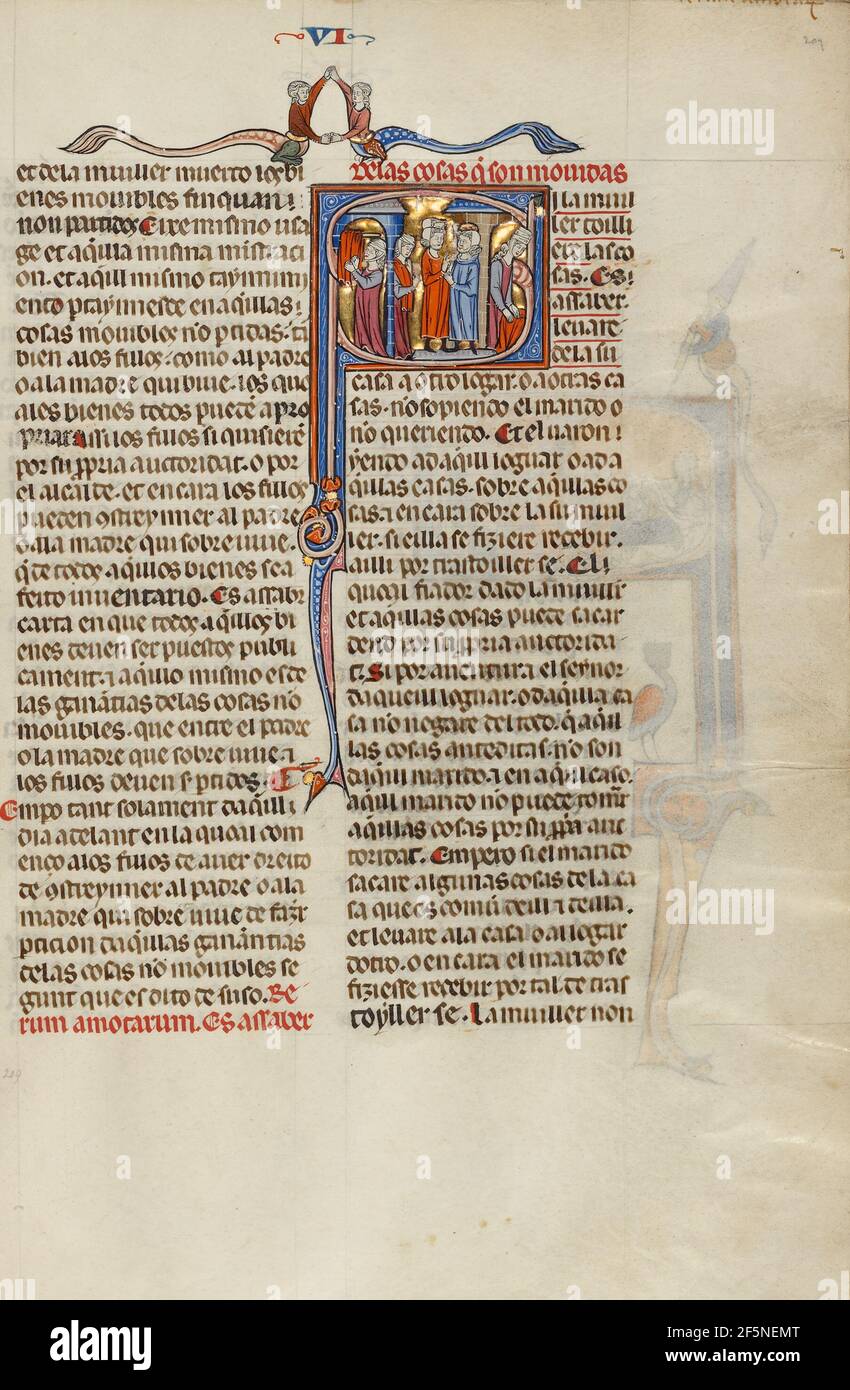 VI
209
et dela muller muerto los bi
enes mouibles finquan ⁊
non partidos. Eixe mismo usa
ge et aq̄lla misma mistraci
on. et aq̄ll mismo taymimj
ento p̃taynnesce en aq̄llas
cosas mouibles nō p̃tidas. tā
bien alos fillos. como al padre
o ala madre qui biue. los qua
les bienes todos puedē apro
piar assi los fillos si quisierē
por su p̃pria auctoridat. o por
el alcalde. et en cara los fillos
pueden ꝯstreynner al padre
o ala madre qui sobre uiue.
q̄ de todos aq̄llos bienes sea
feito inuentario. Es assabr̄
carta en que todos aq̄llos bi
enes deuen ser puestos publi
cament. ⁊ aq̄llo mismo es de
las ganātias delas cosas nō
mouibles. que entre el padre
o la madre que sobre uiue ⁊
los fillos deuen s. p̃tidos. T
Empo tant solament daq̄ll
dia adelant en la qual com
enço alos fillos de auer dreito
de ꝯstreynner al padre o ala
madre qui sobre uiue de faz̄r
p̃ticion daq̄llas ganātias
delas cosas nō mouibles se
gunt que es dito de suso. Re
rum amotarum. Es assaber
delas cosas q̄ son mouidas
i la mull
ler tolli
ere las co
sas. Es
assaber.
leuare
de la su
casa a otro logar. o a otras ca
sas. no sopiendo el marido o
nō queriendo. Et el uaron
yendo ad aq̄ll logar o ad a
q̄llas casas. sobre aq̄llas co
sas. ⁊ en cara sobre la su mull
ler. si ella se fiziere recebir.
alli por trastoller se. El
qual fiador dado la muller
et aq̄llas cosas puede sacar
dend por su p̃pria auctorida
t. Si por auentura el seynor
daquell logar. o daq̄lla ca
sa no negare del todo. q̄ aq̄l
las cosas anteditas. no son
daq̄ll marido. ⁊ en aq̄ll caso.
aq̄ll marido no puede tomr̄
aq̄llas cosas por su p̃p̃a auc
toridat. Empero si el marido
sacare algunas cosas de la ca
sa que es comū dell ⁊ della.
et leuare ala casa o al logar
dotro. o en cara el marido se
fiziesse recebir por tal de tras
toyller se. La muller non
209
alamy
Image ID: 2F5NEMT
www.alamy.com